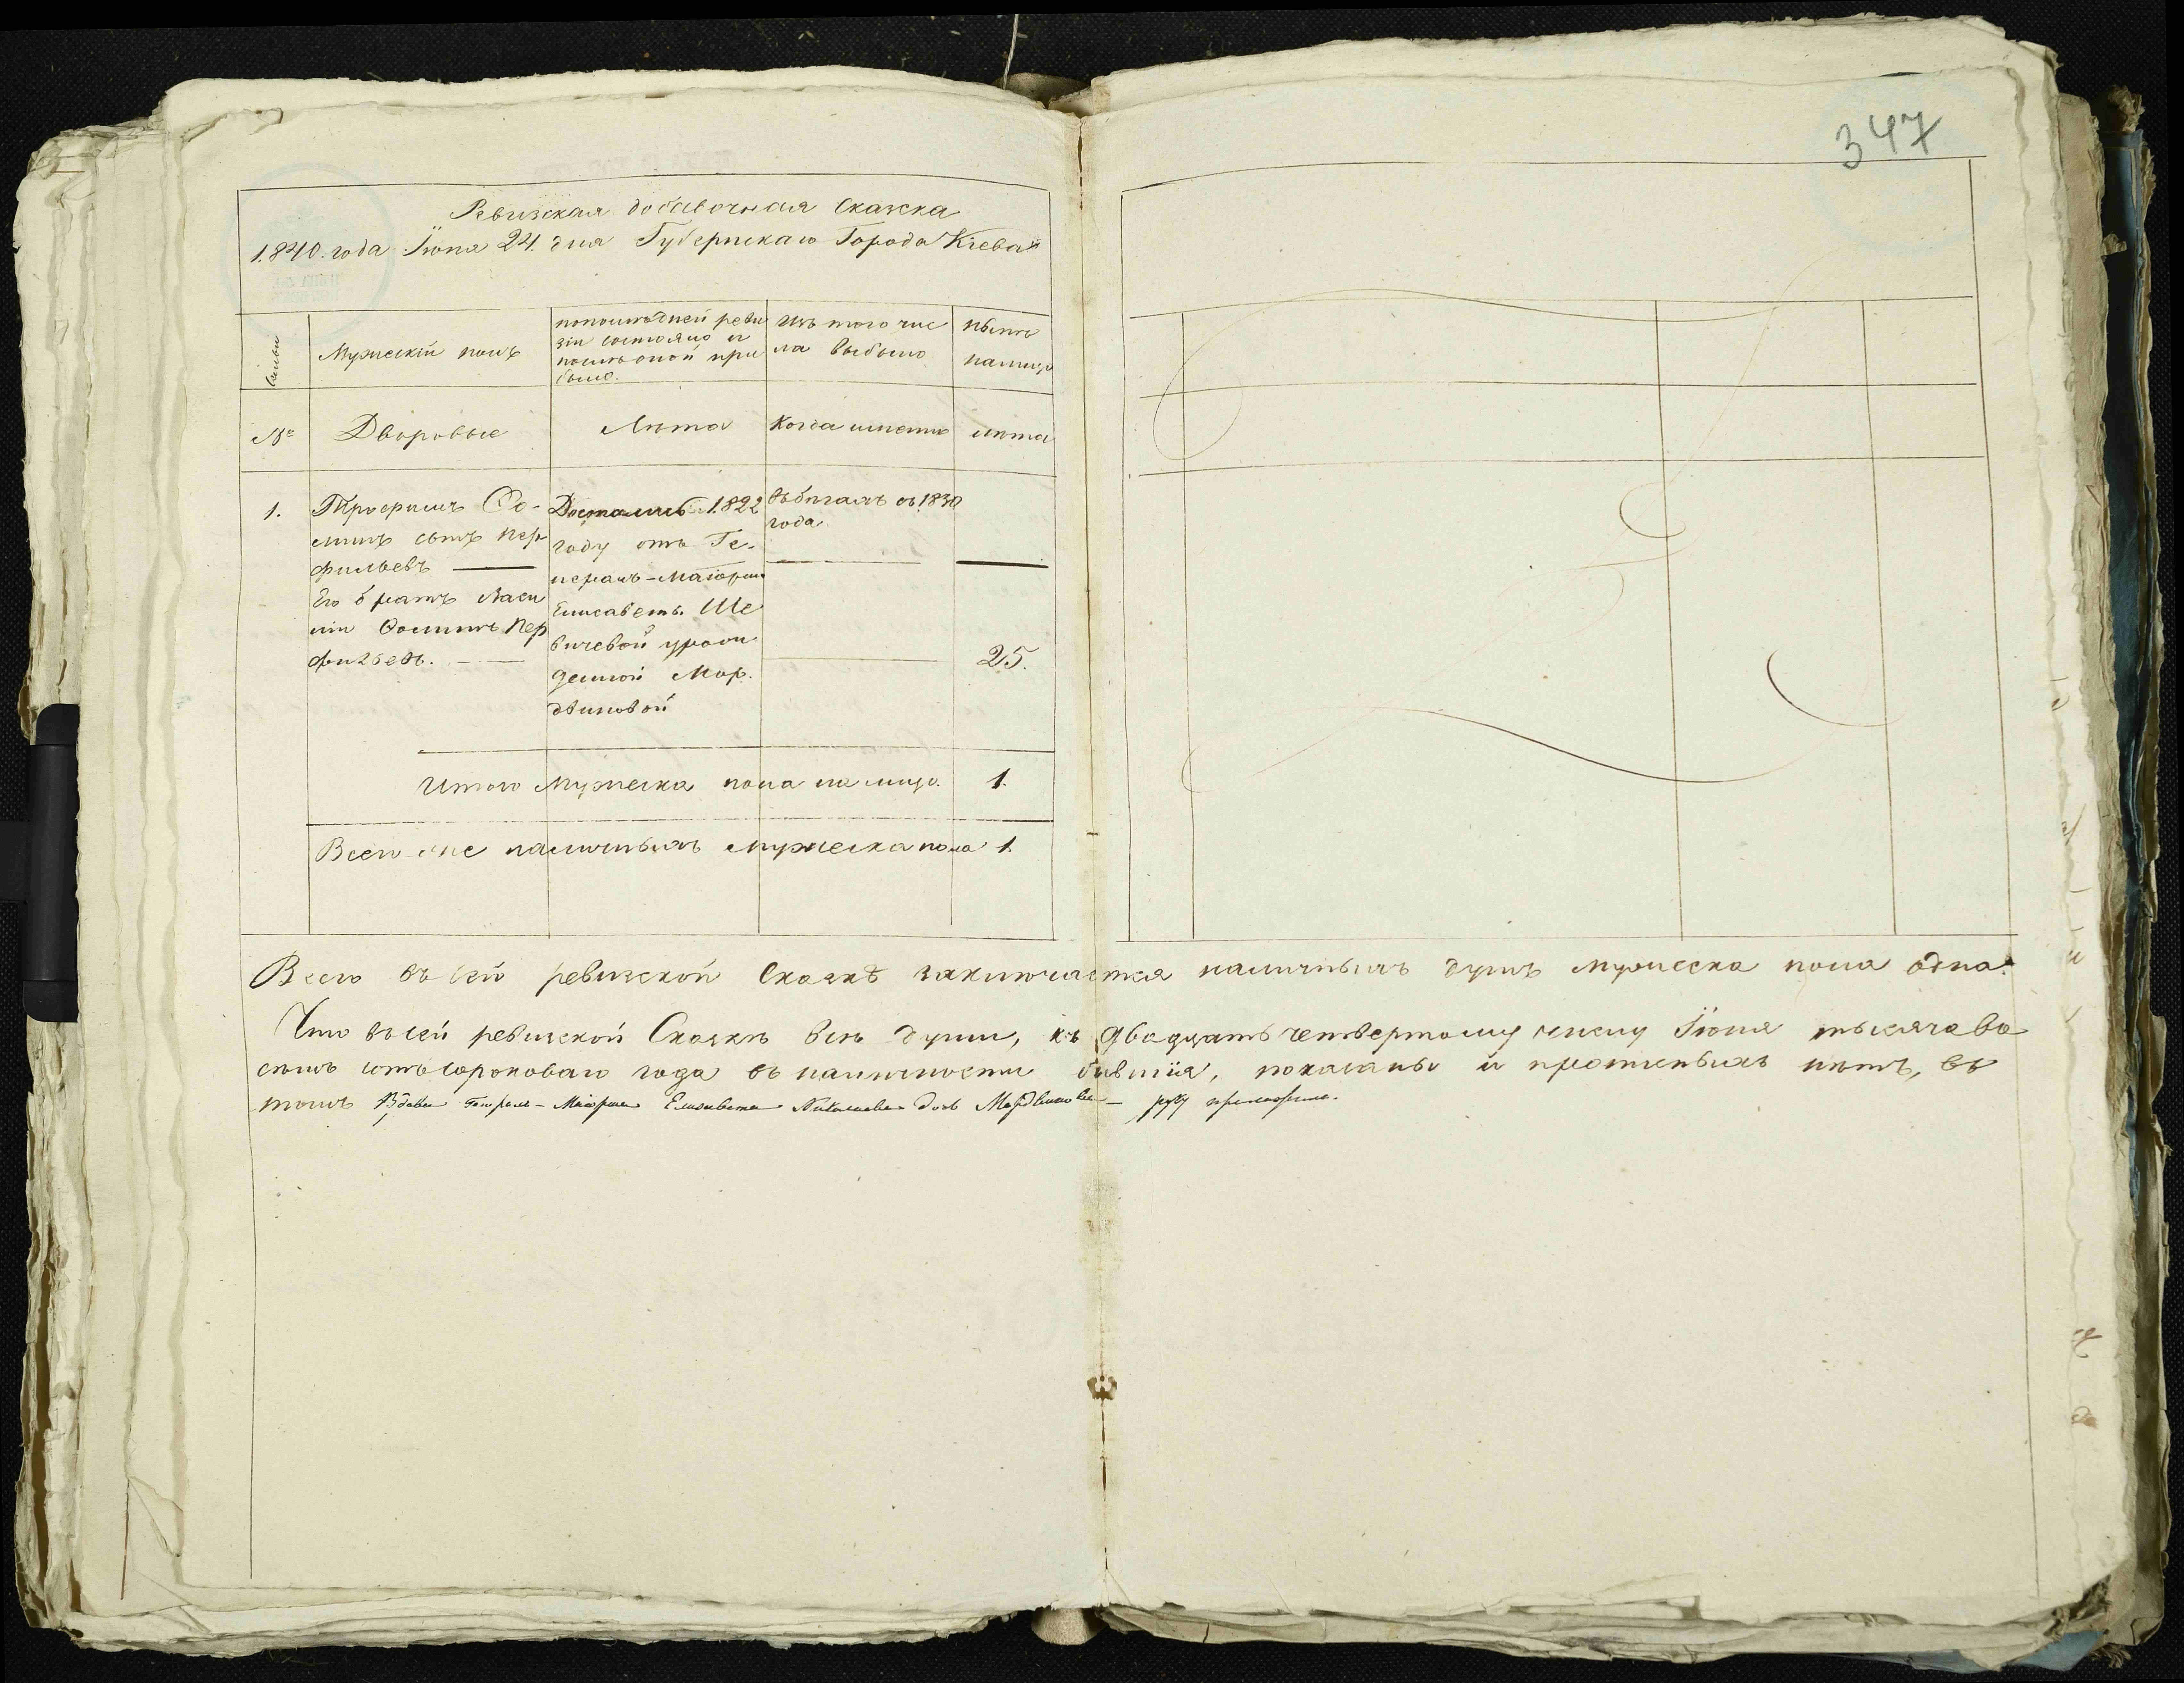 347
Ревизская добавочная сказка
1840. года Iюня 24. дня Губернскаго Города Кiева
Семьи
Мужескiй полъ
попоследней реви
зiи состояло и
послѣ оной при
было.
Изъ того чис
ла выбыло
Нынѣ
налицо
№
Дворовые
Лѣта
Когда именно
лѣта
1.
Трофимъ Ѳо-
минъ сынъ Пер
фильевъ
Его братъ Васи
лiй Ѳоминъ Пер
фильевъ.
Достались 1822
году отъ Ге-
нералъ-Маiорши
Елисаветы Ше
вичевой урож
денной Мор.
двиновой
въ бѣгахъ съ 1830
года
25.
Итого Мужеска пола на лицо. 1.
Всего же наличныхъ мужеска пола 1.
Всего въ сей ревизской Сказкѣ заключается наличныхъ душъ мужеска пола одна.
Что въсей ревизской Сказкѣ всѣ души, къ двадцать четвертому числу Iюня тысяча во
семь сотъ сороковаго года въ наличности бывшiя, показаны и прописныхъ нѣтъ, въ
томъ Вдова Генералъ-Маiорша Елизавета Николаева дочь Мордвинова - руку приложила.